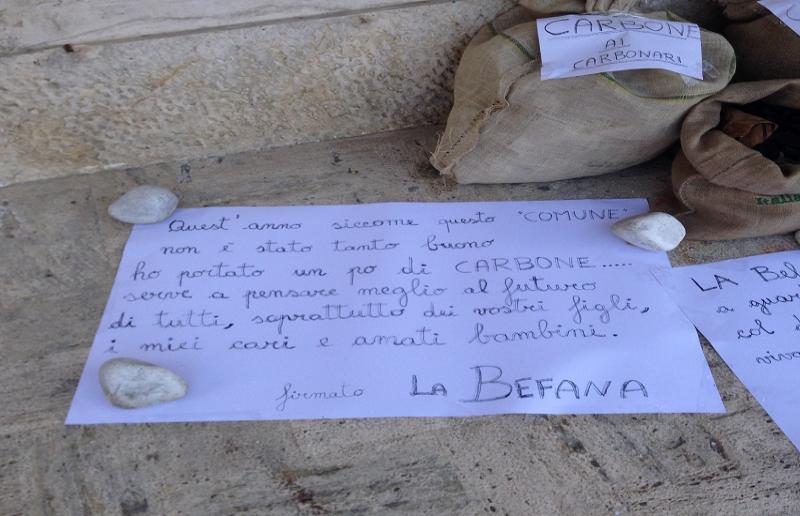 CARBONE
AI
CARBONARI
Quest'anno siccome questo "COMUNE"
non è stato tanto buono
ho portato un po di CARBONE.....
serve a pensare meglio al futuro
di tutti, soprattutto dei vostri figli,
i miei cari e amati bambini.
firmato LA BEFANA
Italia
LA Bef
a guar
col
viva